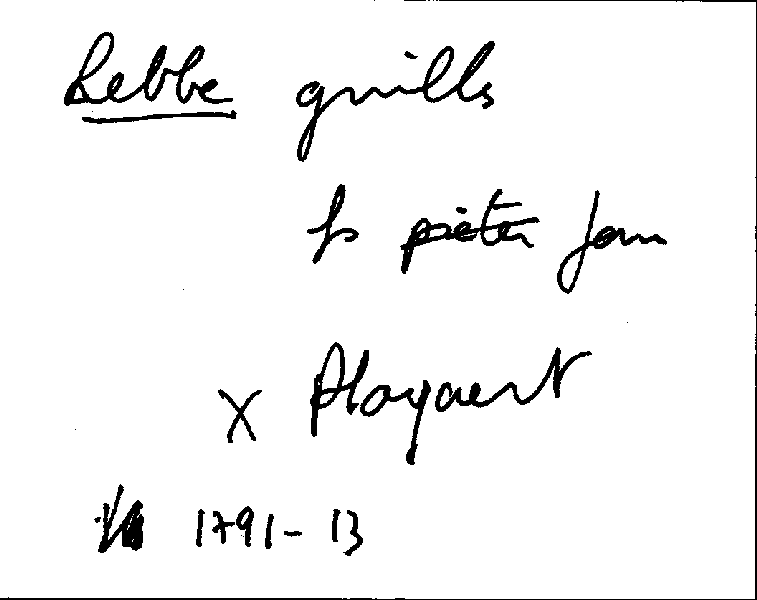 Bebbe guills
fs pieter Jan
x Playaert
1791-13